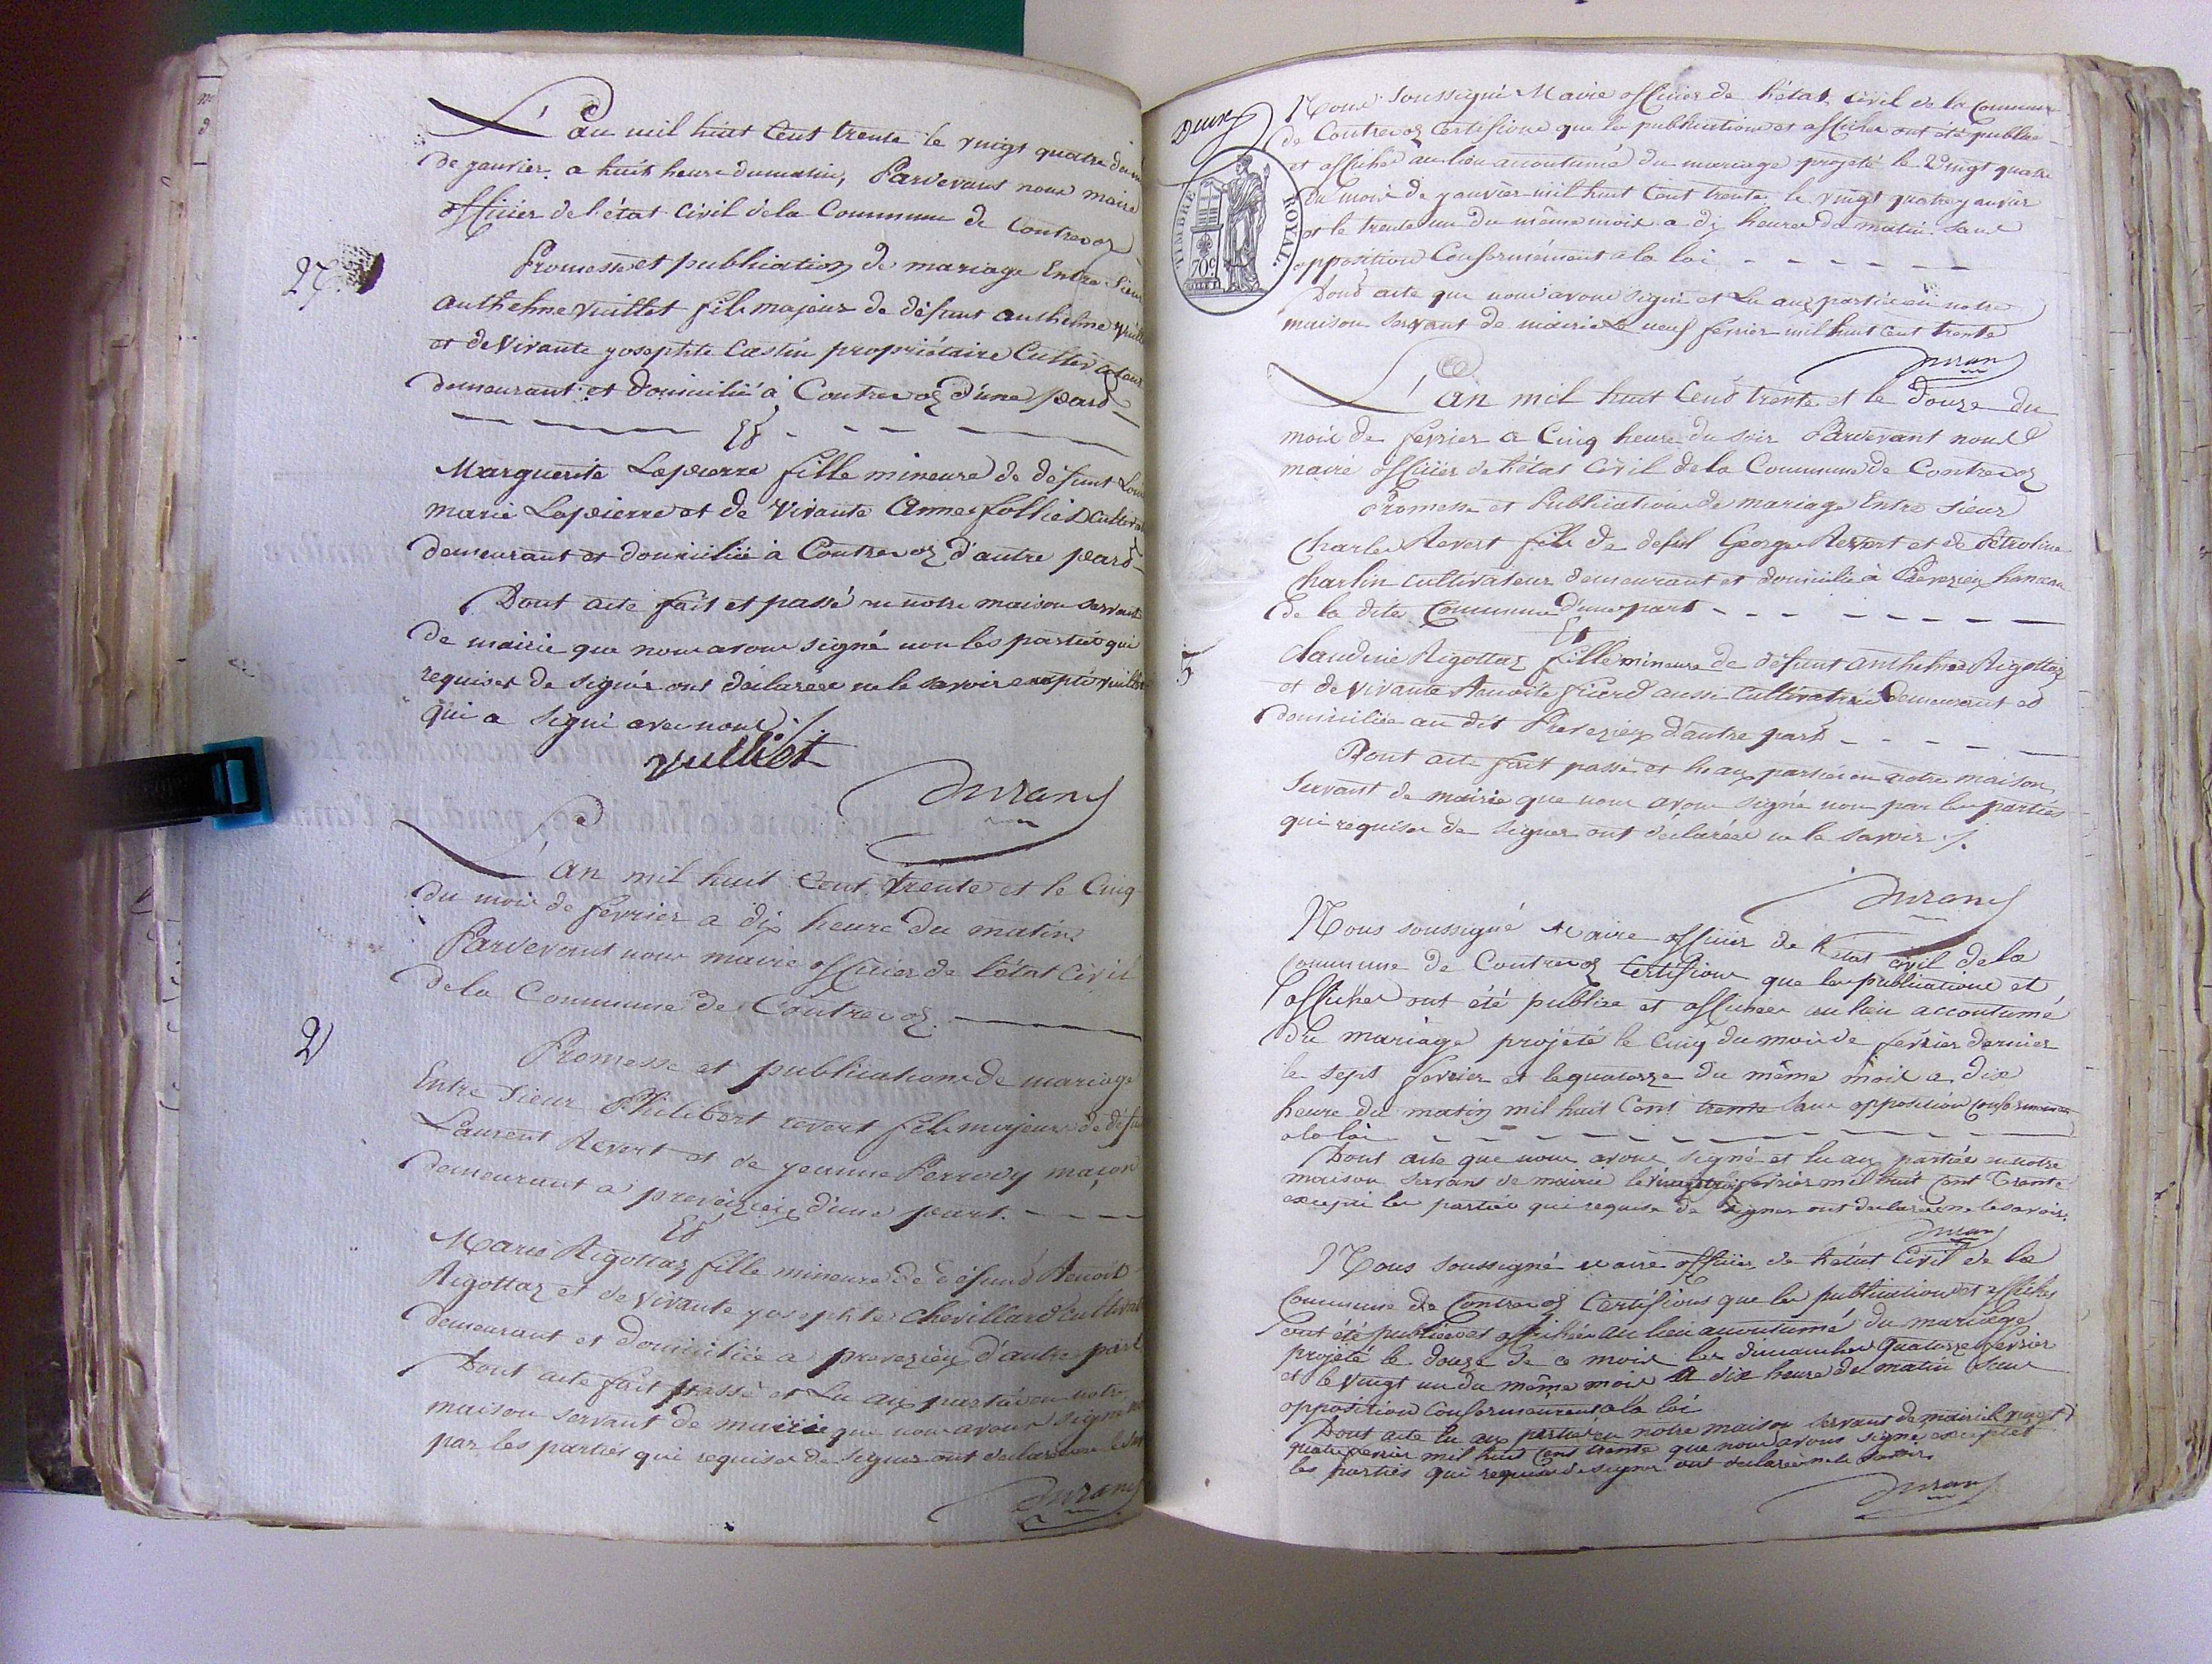 L'an mil huit Cent trente le vingt quatre du
de janvier. a huit heure du matin, Pardevant nous maire
officier de l'état civil de la Commune de Contrevoz
Promesse et publication de mariage Entre Sieur
27
anthelme vuillet fils majeur de défunt anthelme
et de vivante josephte Castin propriétaire Cultivateur
demeurant et domicilié a Contrevoz d'une part
Et
Marguerite Lapierre fille mineure de défunt
marie Lapierre et de vivante Anne folliet
demeurant et domicilié à Contrevoz d'autre part
Dont acte fait et passé en notre maison servant
de mairie que nous avons signé non les parties qui
requises de signer ont déclarées ne le savoir excepté
qui a signé avec nous ./.
vulliet
Durand
L'an mil huit Cent trente et le Cinq
du mois de fevrier a dix heure du matin
Pardevant nous maire officier de l'état civil
de la Commune de Contrevoz.
2
Promesse et publication de mariage
Entre Sieur Philibert revert fils majeur de
Laurent Revert et de jeanne Perrody maçon
demeurant a preveizieux d'une part.
Et
Marie Rigottaz fille mineure de défunt Benoit
Rigottaz et de vivante josephte Chevillard
demeurant et domiciliée a prevezieux d'autre part
Dont acte fait passé et Lu aux parties en notre
maison servant de mairie que nous avons signé
par les parties qui requises de signer ont declarées ne le
Durand
Deux
TIMBRE ROYAL.
70c
Nous Soussigné Maire officier de l'état civil de la Commune
de Contrevoz Certifions que les publications et affiches ont été publiée
et affichée au lieu accoutumé du mariage projeté le Vingt quatre
du mois de janvier mil huit Cent trente le vingt quatre janvier
et le trente un du même mois a dix heures du matin sans
opposition Conformément a la loi
Dont acte que nous avons signé et Lu aux parties en notre
maison servant de mairie Le neuf fevrier mil huit cent trente
Durand
L'an mil huit Cent trente et le Douze du
mois de fevrier a Cinq heure du soir Pardevant nous
maire officier de l'état civil de la Commune de Contrevoz
Promesse et Publication de mariage Entre Sieur
Charles Revert fils de George Revert et de Petroline
Charlin cultivateur demeurant et domicilié à Preveizieux hameau
de la dite Commune d'une part
Et
3
Claudine Rigottaz fille mineure de défunt anthelme Rigottaz
et de vivante Benoite aussi Cultivatrice Demeurant et
domiciliée au dit Prevezieux d'autre part
Dont acte fait passé et lu aux parties en notre maison
Servant de mairie que nous avons signé non par les parties
qui requises de signer ont déclarées ne le savoir ./.
Durand
Nous soussigné Maire officier de l'état civil de la
Commune de Contrevoz Certifions que les publications et
affiches ont été publiée et affichée au lieu accoutumé
du mariage projeté le Cinq du mois de fevrier dernier
le sept fevrier et le quatorze du même mois a dix
heure du matin mil huit Cent trente sans opposition conformément
a la loi
Dont acte que nous avons signé et lu aux parties en notre
maison servant de mairie le fevrier mil huit Cent Trente
excepté les parties qui requise de signer ont declarées ne le savoir.
Durand
Nous soussigné maire officier de l'état Civil de la
Commune de Contrevoz Certifions que les publication et affiches
ont été publiées et affichées au lieu accoutumé du mariage
projeté le douze de ce mois les dimanches Quatorze fevrier
et le vingt un du même mois a dix heure du matin sans
opposition Conformément a la loi
Dont acte lu aux parties en notre maison servant de mairie le vingt
quatre fevrier mil huit Cent trente que nous avons signé exceptés
les parties qui requises de signer ont declarées ne le savoir.
Durand